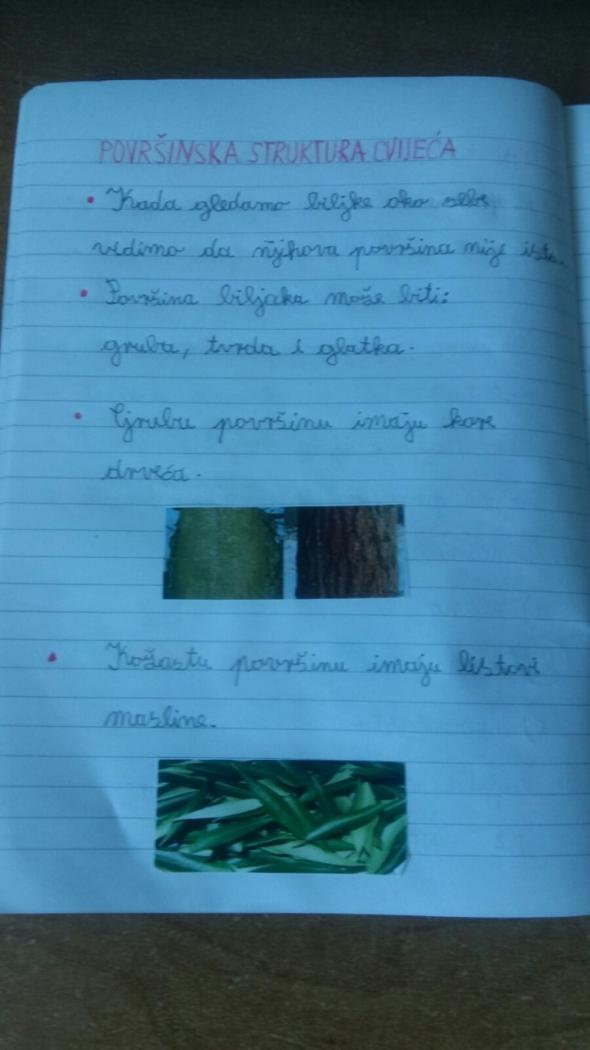 POVRŠINSKA STRUKTURA CVIJEĆA
• Kada gledamo biljke oko sebe
vidimo da njihova površina nije ista.
• Površina biljaka može biti:
gruba, tvrda i glatka.
• Grubu površinu imaju kore
drveća.
• Kožastu površinu imaju listovi
masline.